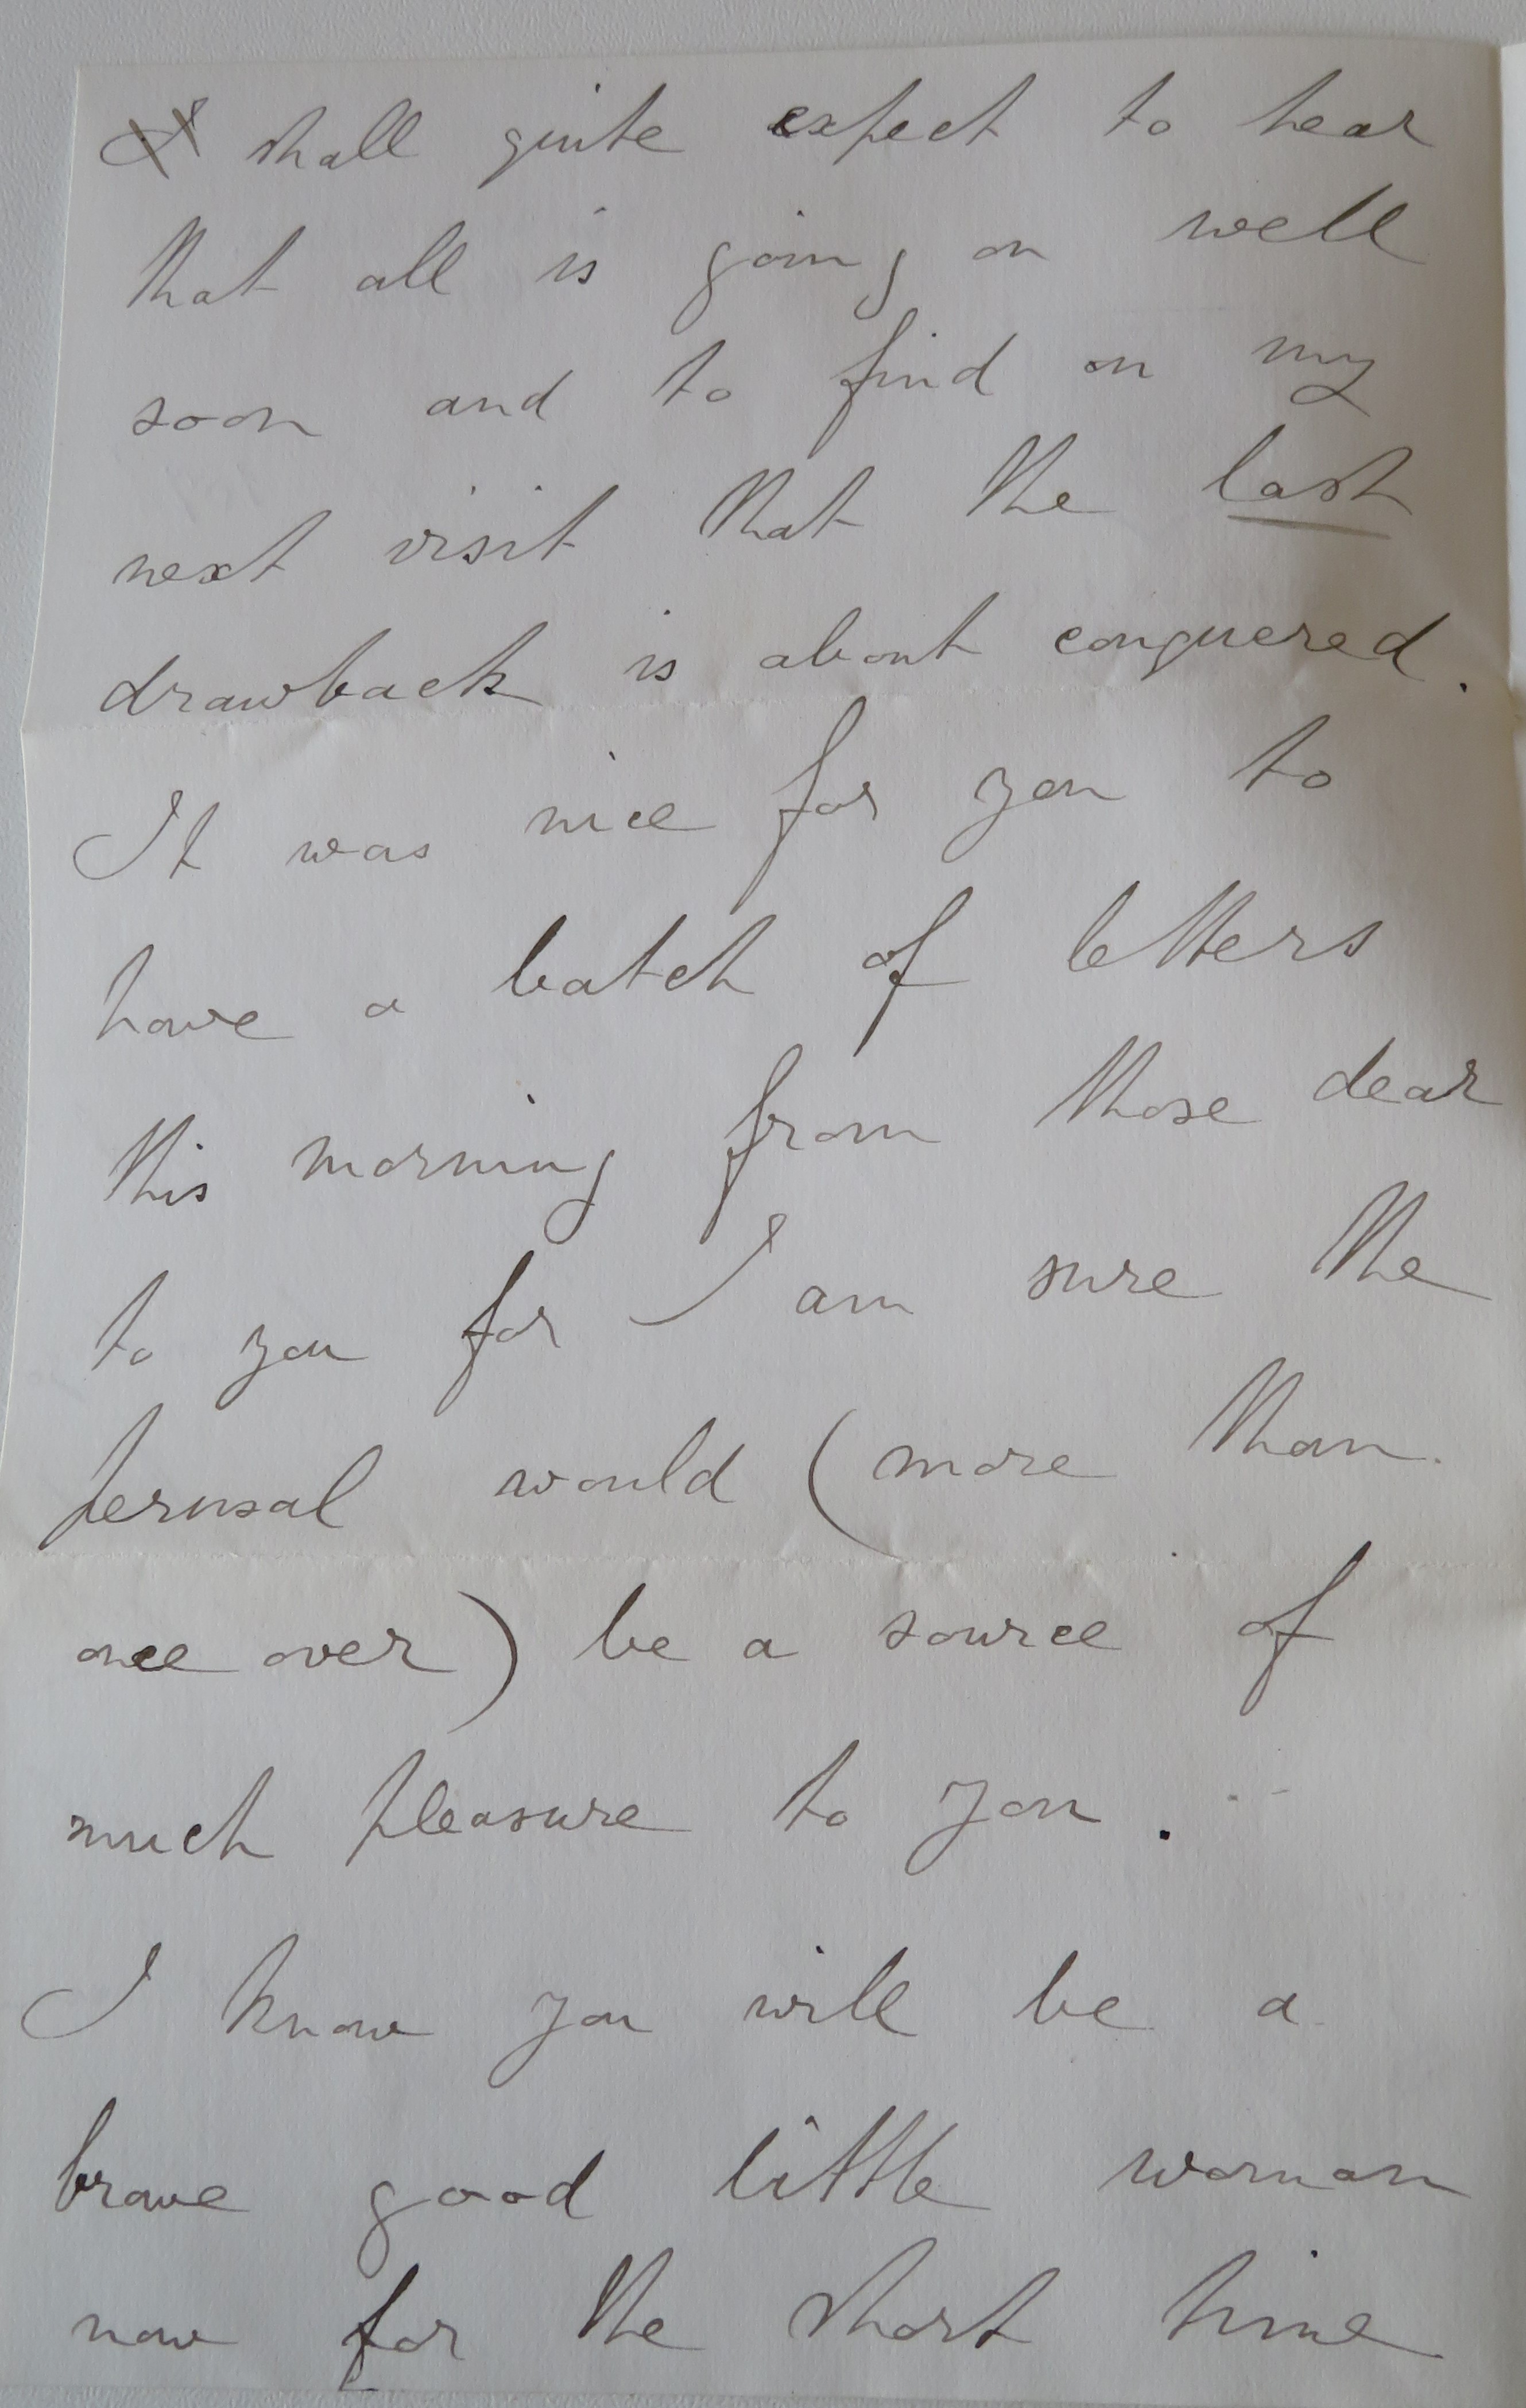 I shall quite expect to hear
that all is going on well
soon and to find on my
next visit that the last
drawback is about conquered.
It was nice for you to
have a batch of letters
this morning from those dear
to you for I am sure the
perusal would (more than
once over) be a source of
much pleasure to you.
I know you will be a
brave good little woman
now for the short time